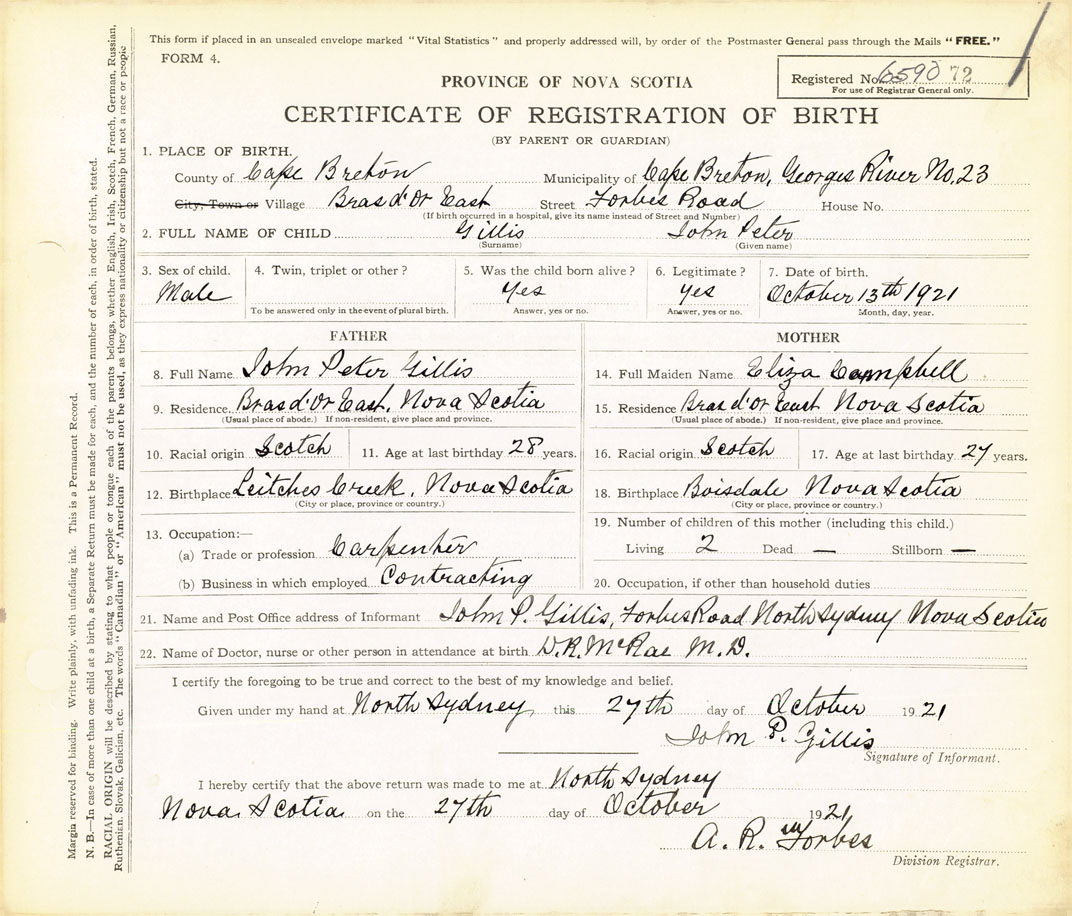 This form if placed in an unsealed envelope marked "Vital Statistics" and properly addressed will, by order of the Postmaster General pass through the Mails "FREE."
FORM 4.
Registered No. 6590 72
For use of Registrar General only.
PROVINCE OF NOVA SCOTIA
CERTIFICATE OF REGISTRATION OF BIRTH
(BY PARENT OR GUARDIAN)
1. PLACE OF BIRTH.
County of Cape Breton Municipality of Cape Breton, Georges River No, 23
City, Town or Village Bras d'Or East Street Forbes Road House No.
(If birth occurred in a hospital, give its name instead of Street and Number)
2. FULL NAME OF CHILD Gillis John Peter
(Surname) (Given name)
3. Sex of child. 4. Twin, triplet or other? 5. Was the child born alive? 6. Legitimate? 7. Date of birth.
Male Yes Yes October 13th 1921
To be answered only in the event of plural birth. Answer, yes or no. Answer, yes or no. Month, day, year.
FATHER MOTHER
8. Full Name John Peter Gillis 14. Full Maiden Name Eliza Campbell
9. Residence Bras d'Or East, Nova Scotia 15. Residence Bras d'Or East Nova Scotia
(Usual place of abode.) If non-resident, give place and province. (Usual place of abode.) If non-resident, give place and province.
10. Racial origin Scotch 11. Age at last birthday 28 years. 16. Racial origin Scotch 17. Age at last birthday 27 years.
12. Birthplace Leitches Creek, Nova Scotia 18. Birthplace Boisdale Nova Scotia
(City or place, province or country.) (City or place, province or country.)
13. Occupation:— 19. Number of children of this mother (including this child.)
(a) Trade or profession Carpenter Living 2 Dead — Stillborn —
(b) Business in which employed Contracting 20. Occupation, if other than household duties
21. Name and Post Office address of Informant John P. Gillis, Forbes Road North Sydney Nova Scotia
22. Name of Doctor, nurse or other person in attendance at birth D. R. McRae M. D.
I certify the foregoing to be true and correct to the best of my knowledge and belief.
Given under my hand at North Sydney this 27th day of October 1921
John P. Gillis
Signature of Informant.
I hereby certify that the above return was made to me at North Sydney
Nova Scotia on the 27th day of October 1921
A. R. Forbes
Division Registrar.
Margin reserved for binding. Write plainly, with unfading ink. This is a Permanent Record.
N. B.—In case of more than one child at a birth, a Separate Return must be made for each, and the number of each, in order of birth, stated.
RACIAL ORIGIN will be described by stating to what people or tongue each of the parents belongs, whether English, Irish, Scotch, French, German, Russian,
Ruthenian, Slovak, Galician, etc. The words "Canadian" or "American" must not be used, as they express nationality or citizenship but not a race or people